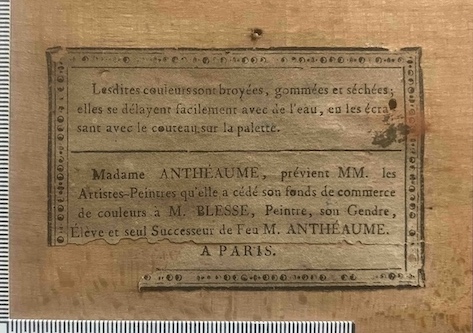 Lesdites couleurs sont broyées, gommées et séchées;
elles se délayent facilement avec de l'eau, en les écra
sant avec le couteau sur la palette.
Madame ANTHÉAUME, prévient MM. les
Artistes-Peintres qu'elle a cédé son fonds de commerce
de couleurs à M. BLESSE, Peintre, son Gendre,
Élève et seul Successeur de Feu M. ANTHÉAUME.
A PARIS.